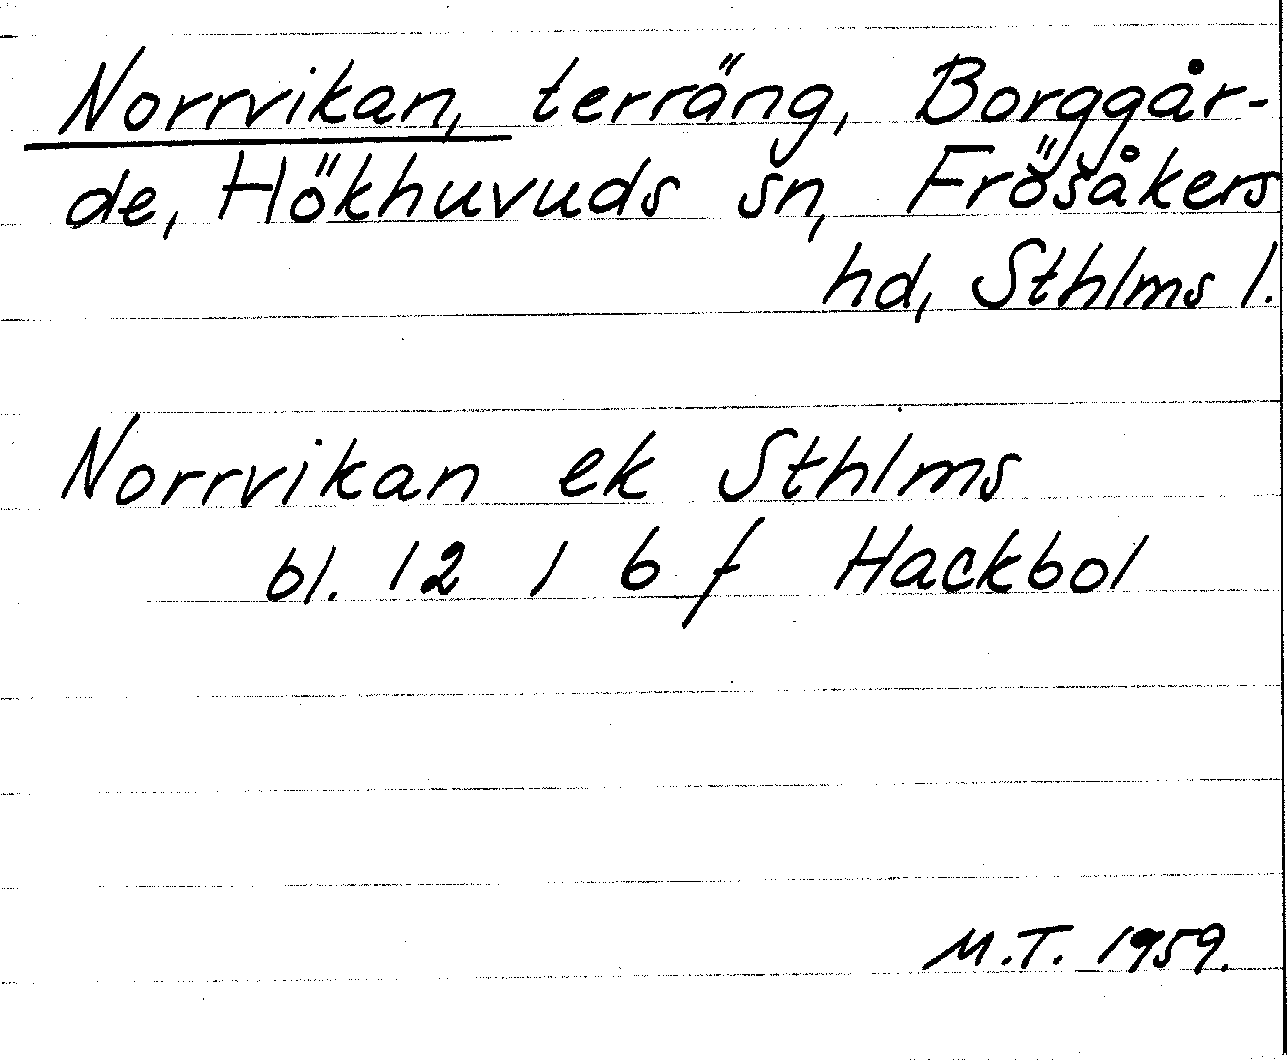 Norrvikan, terräng, Borggår-
de, Hökhuvuds sn, Frösåkers
hd, Sthlms l.
Norrvikan ek Sthlms
bl. 12 1 b f Hackbol
M.T. 1959.